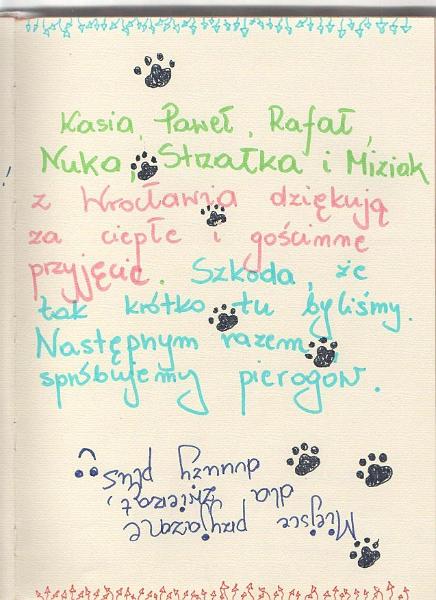 Kasia, Paweł, Rafał,
Nuka, Strzałka i Miziak
z Wrocławia dziękują
za ciepłe i gościnne
przyjęcie. Szkoda, że
tak krótko tu byliśmy.
Następnym razem
spróbujemy pierogów.
Miejsce przyjazne
dla zwierząt,
duuuży plus
:)